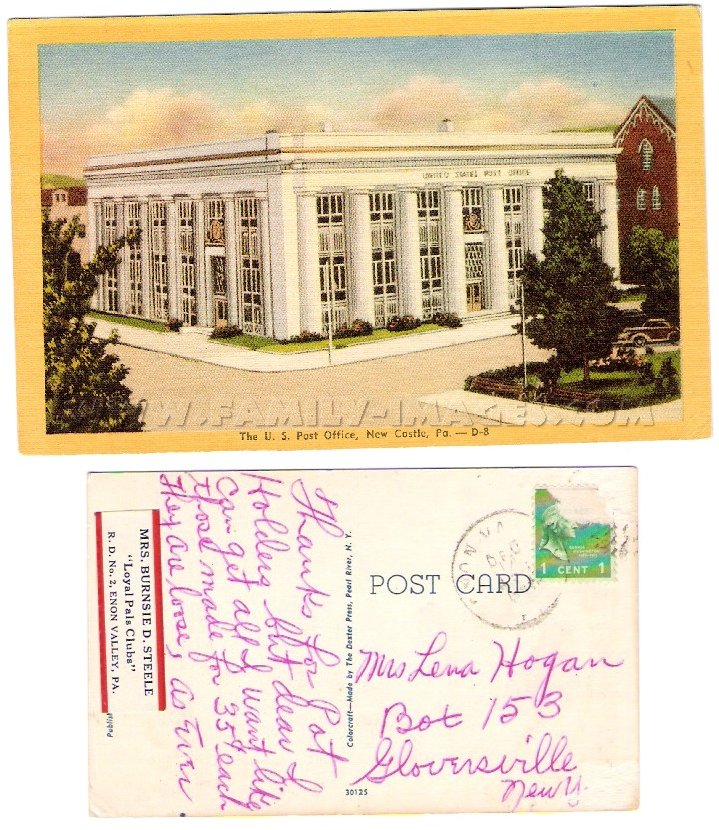 UNITED STATES POST OFFICE
WWW.FAMILY-IMAGES.COM
The U. S. Post Office, New Castle, Pa. — D-8
MRS. BURNSIE D. STEELE
"Loyal Pals Clubs"
R. D. No. 2, ENON VALLEY, PA.
Thanks for Pot
Holders but dear I
Can get all I want like
those made for 35¢ each
They are loose, as Ever
Colorcraft—Made by The Dexter Press, Pearl River, N. Y.
POST CARD
1 CENT 1
Mrs Lena Hogan
Box 153
Gloversville
New Y.
30125